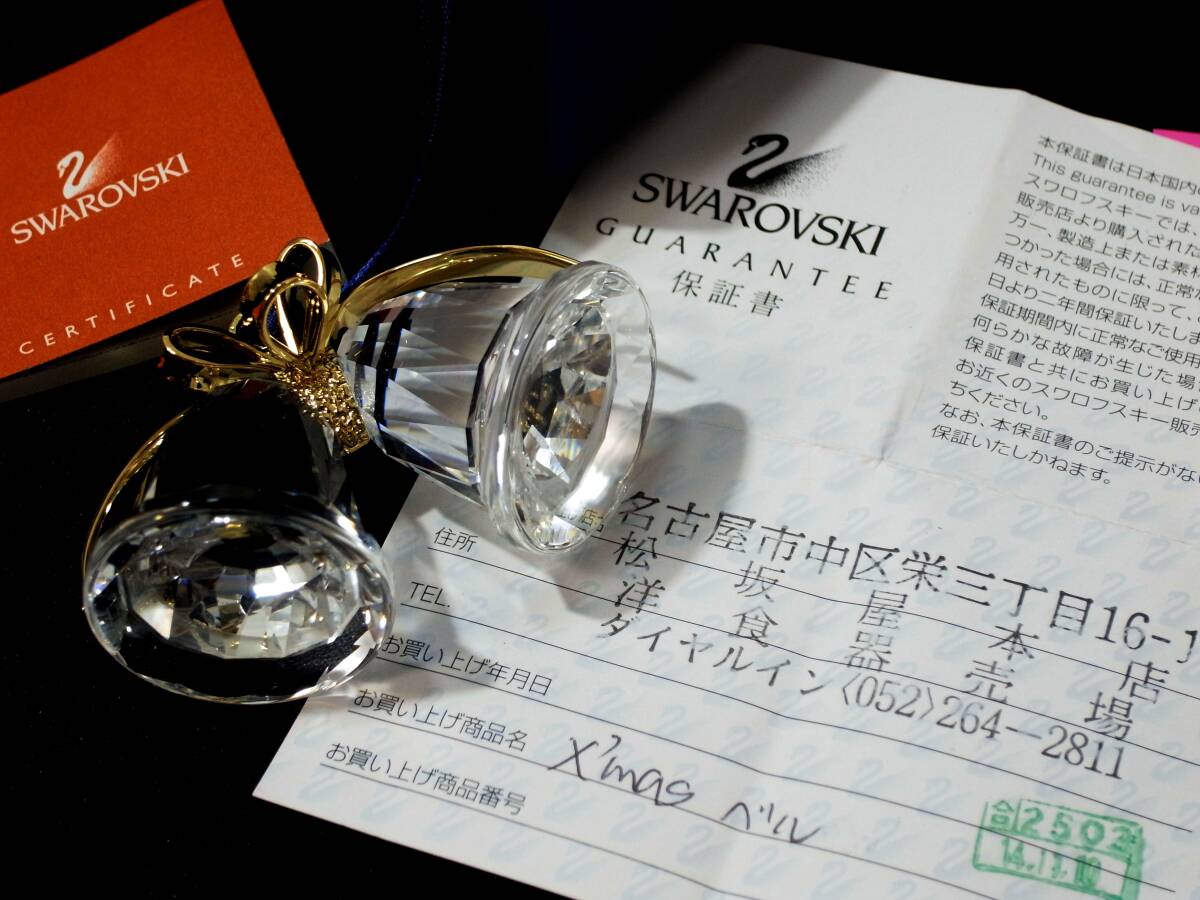 SWAROVSKI
CERTIFICATE
SWAROVSKI
GUARANTEE
保証書
本保証書は日本国内
This guarantee is
スワロフスキーでは、
販売店より購入された
万一、製造上または素
つかった場合には、正常な
用されたものに限って、
日より二年間保証いたしま
保証期間内に正常なご使用
何らかな故障が生じた場
保証書と共にお買い上げ
お近くのスワロフスキー販売
ちください。
なお、本保証書のご提示がな
保証いたしかねます。
店名
名古屋市中区栄三丁目16-1
住所
松坂屋本店
TEL.
洋食器売場
ダイヤルイン〈052〉264-2811
お買い上げ年月日
お買い上げ商品名
X'mas ベル
お買い上げ商品番号
合2503
14.11.10